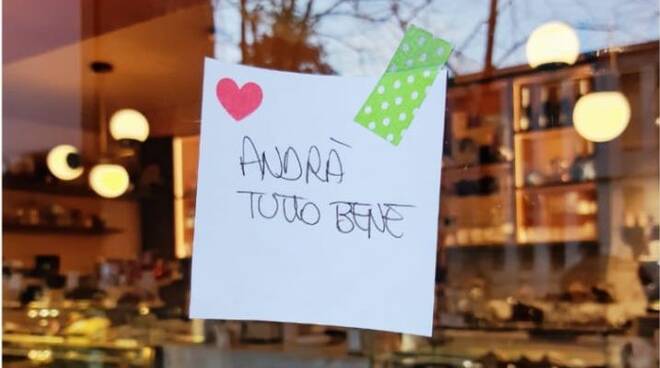 ANDRÀ
TUTTO BENE